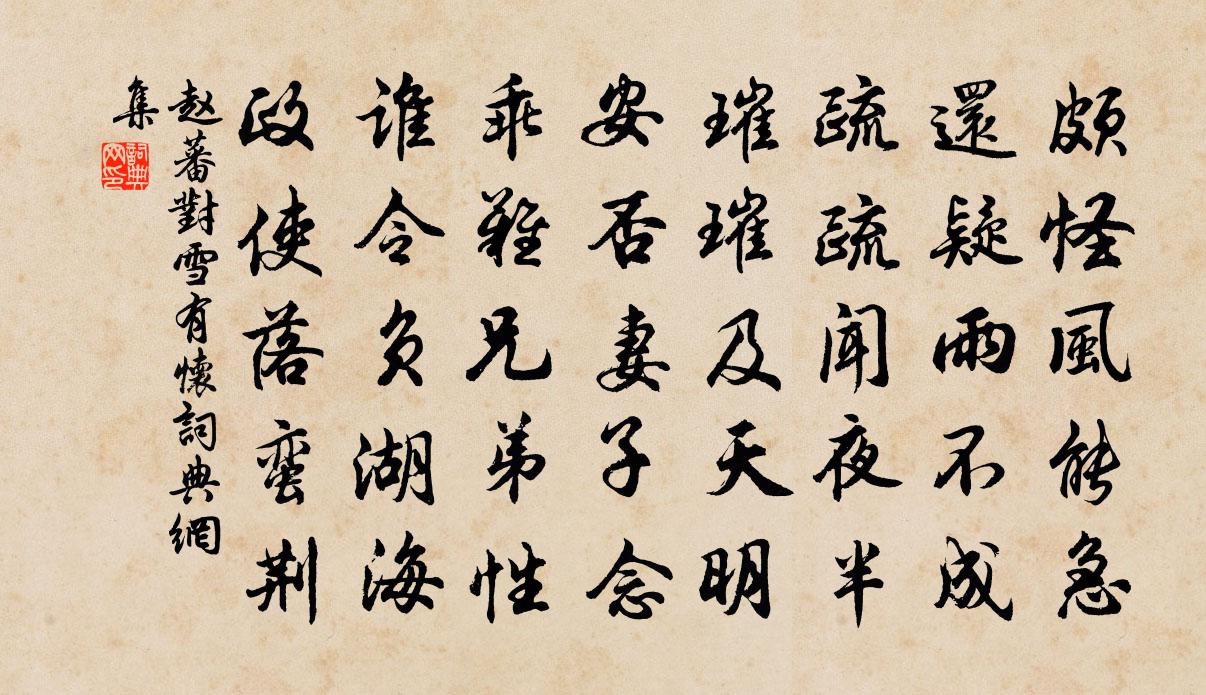 頗怪風能急
還疑雨不成
疏疏闻夜半
璀璀及天明
安否妻子念
乖難兄弟性
谁令负湖海
政使落蛮荆
赵蕃對雪有懷詞典網
集
詞典网印